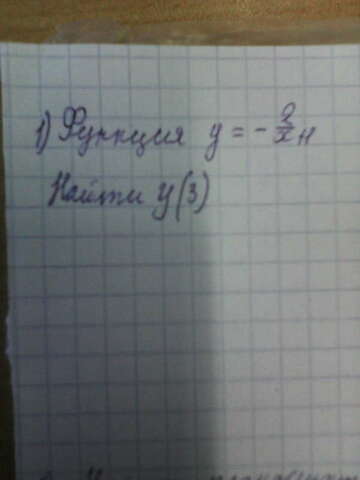 1) Функция y = - 2/x н
Найти y(3)